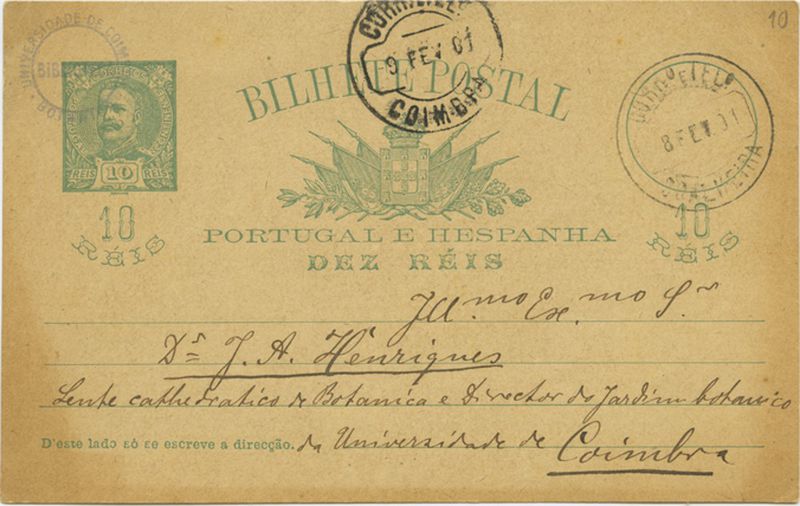 10
UNIVERSIDADE DE COIM
BIBLIO
BOT
CORR. E TEL.
9 FEV 01
COIMBRA
BILHETE POSTAL
CORRO E TELO
8 FEV. 01
PORTUGAL
CONTINENTE
REIS 10 REIS
10
RÉIS
10
RÉIS
PORTUGAL E HESPANHA
DEZ RÉIS
Ill.mo Ex.mo Sr
Dr J. A. Henriques
Lente cathedratico de Botanica e Director do Jardim botanico
D'este lado só se escreve a direcção. da Universidade de Coimbra